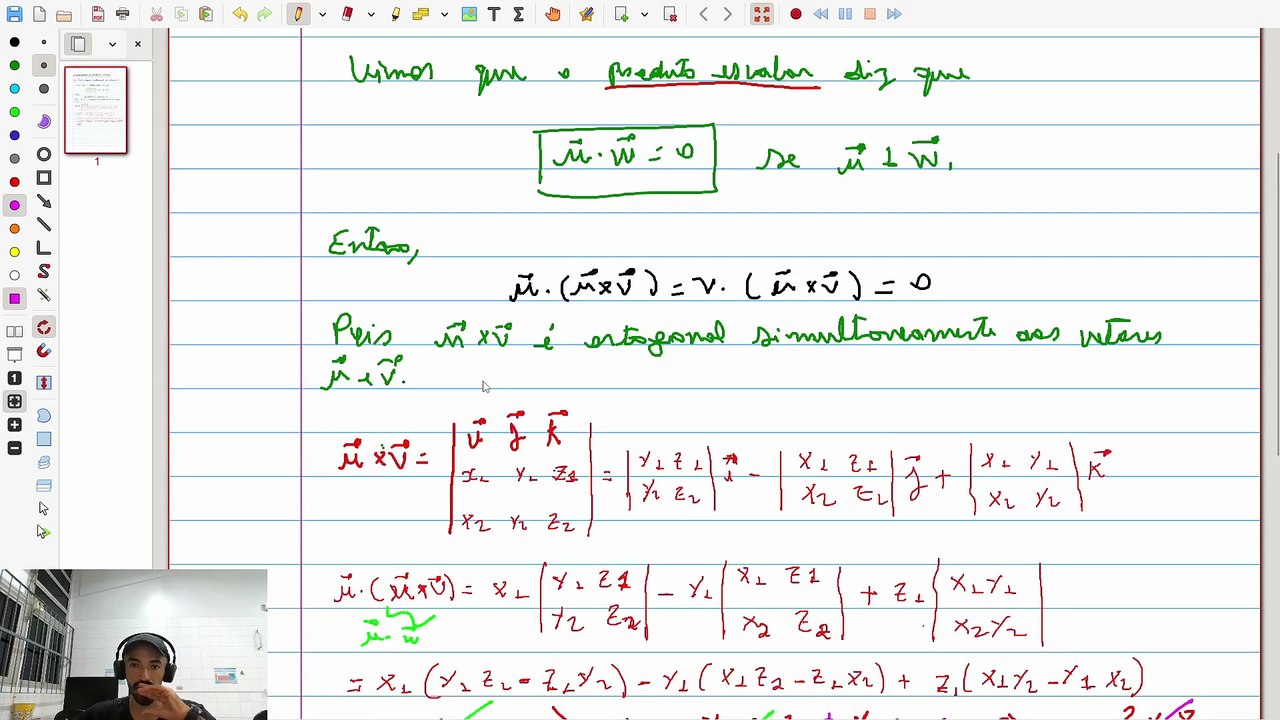 Vimos que o produto escalar diz que
u⃗ · w⃗ = 0 se u⃗ ⊥ w⃗.
Então,
u⃗ · (u⃗ × v⃗) = v · (u⃗ × v⃗) = 0
Pois u⃗ × v⃗ é ortogonal simultaneamente aos vetores
u⃗ e v⃗.
u⃗ × v⃗ = | i⃗ j⃗ k⃗ | = | y₁ z₁ | i⃗ − | x₁ z₁ | j⃗ + | x₁ y₁ | k⃗
| x₁ y₁ z₁ | | y₂ z₂ | | x₂ z₂ | | x₂ y₂ |
| x₂ y₂ z₂ |
u⃗ · (u⃗ × v⃗) = x₁ | y₁ z₁ | − y₁ | x₁ z₁ | + z₁ | x₁ y₁ |
| y₂ z₂ | | x₂ z₂ | | x₂ y₂ |
u⃗ · w⃗
= x₁ (y₁ z₂ − z₁ y₂) − y₁ (x₁ z₂ − z₁ x₂) + z₁ (x₁ y₂ − y₁ x₂)
1
1